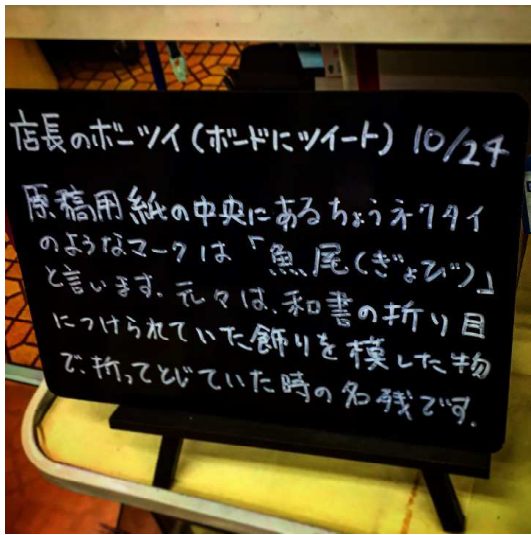 店長のボーツイ(ボードにツイート) 10/24
原稿用紙の中央にあるちょうネクタイ
のようなマークは「魚尾(ぎょび)」
と言います。元々は、和書の折り目
につけられていた飾りを模した物
で、折ってとじていた時の名残です。